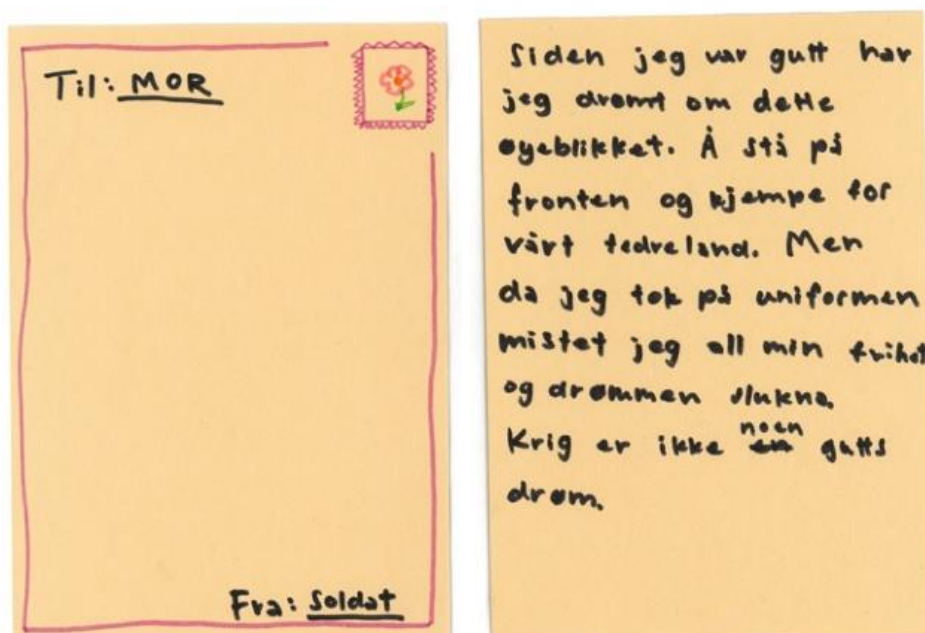 Til: MOR
Fra: Soldat
Siden jeg var gutt har
jeg drømt om dette
øyeblikket. Å stå på
fronten og kjempe for
vårt fedreland. Men
da jeg tok på uniformen
mistet jeg all min frihet
og drømmen slukna.
Krig er ikke noen gutts
drøm.